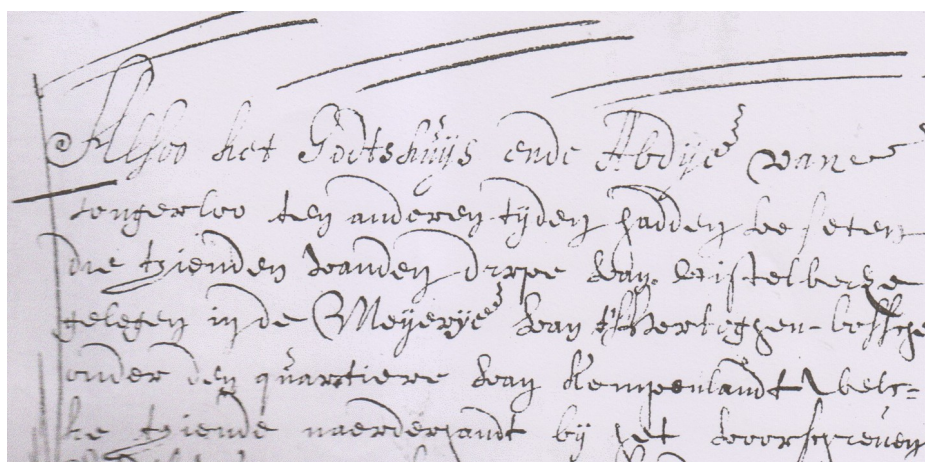 Alsoo het Godtshuijs ende Abdije van
tongerloo ten anderen tijden hadden beseten
die thienden vanden dorpe van Mistelbeers
gelegen in de Meijerije van tsHertoghen-bossche
onder den quartiere van Kempenlandt welc=
ke thiende naerderhandt bij het voorschreven